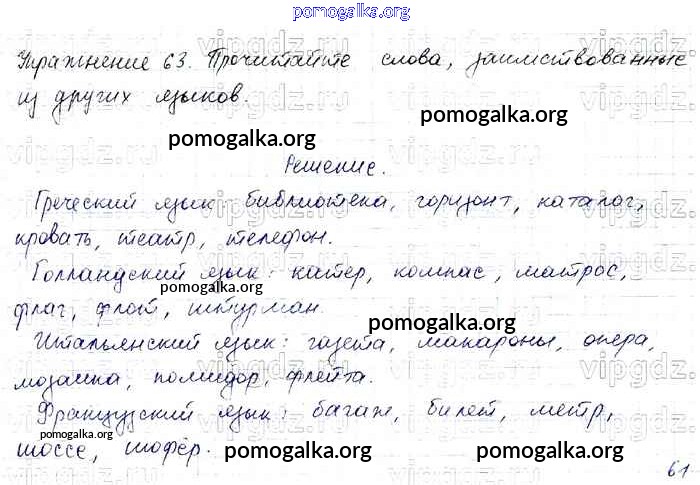 pomogalka.org
Упражнение 63. Прочитайте слова, заимствованные
из других языков.
pomogalka.org
pomogalka.org
Решение.
Греческий язык: библиотека, горизонт, каталог,
кровать, театр, телефон.
Голландский язык: катер, компас, матрос,
pomogalka.org
флаг, флот, штурман.
pomogalka.org
Итальянский язык: газета, макароны, опера,
мозаика, помидор, флейта.
Французский язык: багаж, билет, метр,
pomogalka.org
шоссе, шофёр.
pomogalka.org
pomogalka.org
61